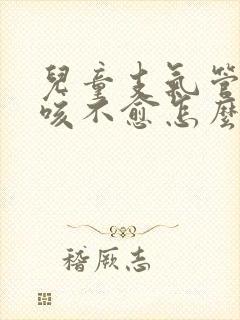 兒童支氣管
咳不愈怎麼
稽厥志